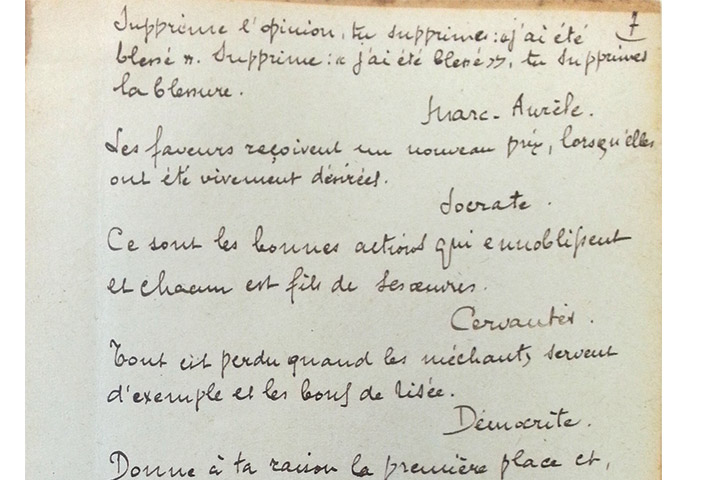 7
Supprime l'opinion, tu supprimes : « j'ai été
blessé ». Supprime : « j'ai été blessé », tu supprimes
la blessure.
Marc-Aurèle.
Les faveurs reçoivent un nouveau prix, lorsqu'elles
ont été vivement désirées.
Socrate.
Ce sont les bonnes actions qui ennoblissent
et chacun est fils de ses œuvres.
Cervantès.
Tout est perdu quand les méchants servent
d'exemple et les bons de risée.
Démocrite.
Donne à ta raison la première place et,